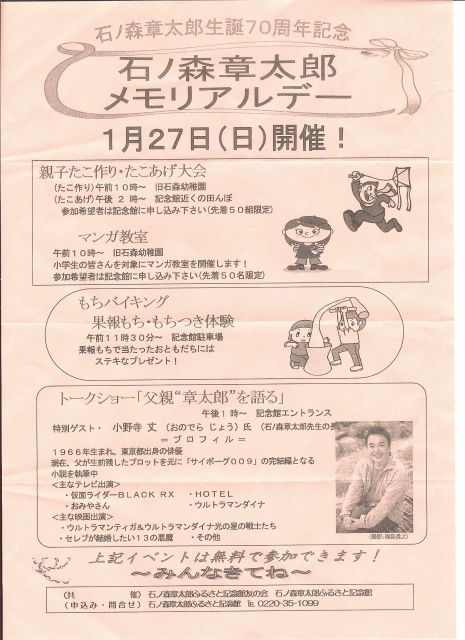 石ノ森章太郎生誕70周年記念
石ノ森章太郎
メモリアルデー
1月27日(日)開催!
親子たこ作り・たこあげ大会
(たこ作り)午前10時~ 旧石森幼稚園
(たこあげ)午後 2時~ 記念館近くの田んぼ
参加希望者は記念館に申し込み下さい(先着50組限定)
マンガ教室
午前10時~ 旧石森幼稚園
小学生の皆さんを対象にマンガ教室を開催します!
参加希望者は記念館に申し込み下さい(先着50名限定)
もちバイキング
果報もち・もちつき体験
午前11時30分~ 記念館駐車場
果報もちで当ったおともだちには
ステキなプレゼント!
トークショー「父親“章太郎”を語る」
午後1時~ 記念館エントランス
特別ゲスト・ 小野寺 丈 (おのでら じょう) 氏 (石ノ森章太郎先生の長
=プロフィル=
1966年生まれ。東京都出身の俳優
現在、父が生前残したプロットを元に「サイボーグ009」の完結編となる
小説を執筆中
<主なテレビ出演>
・仮面ライダーBLACK RX ・HOTEL
・おみやさん ・ウルトラマンダイナ
<主な映画出演>
・ウルトラマンティガ&ウルトラマンダイナ光の星の戦士たち
・セレブが結婚したい13の悪魔 ・その他
(撮影:福島貴之)
上記イベントは無料で参加できます!
~みんなきてね~
(共 催) 石ノ森章太郎ふるさと記念館友の会 石ノ森章太郎ふるさと記念館
(申込み・問合せ) 石ノ森章太郎ふるさと記念館 TEL 0220-35-1099